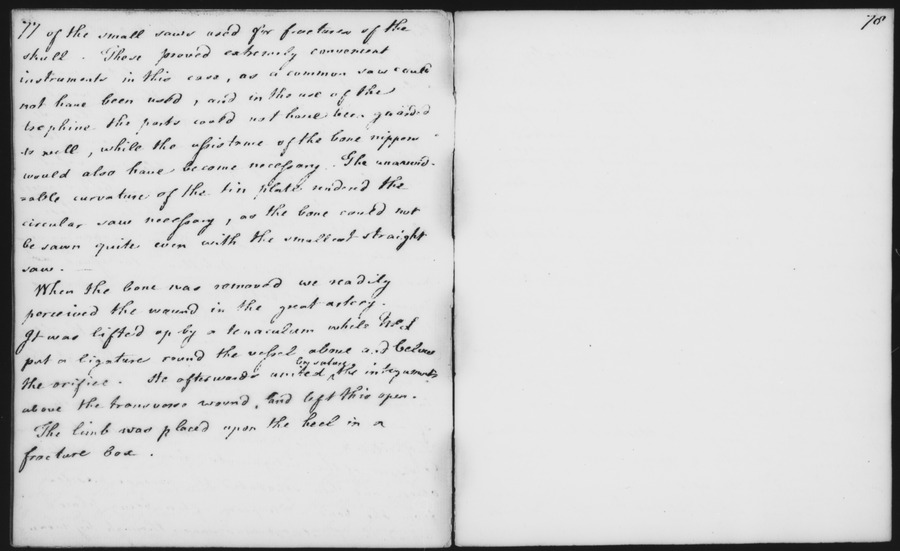 77 of the small saws used for fractures of the
skull. These proved extremely convenient
instruments in this case, as a common saw could
not have been used, and in the use of the
trephine the parts could not have been guarded
so well, while the assistance of the bone nippers
would also have become necessary. The unavoid-
=able curvature of the tin plate rendered the
circular saw necessary, as the bone could not
be sawn quite even with the smallest straight
saw.
When the bone was removed we readily
perceived the wound in the great artery.
It was lifted up by a tenaculum while
put a ligature round the vessel above and below
the orifice. He afterwards united by suture the integuments
above the transverse wound, and left this open.
The limb was placed upon the heel in a
fracture box.
78